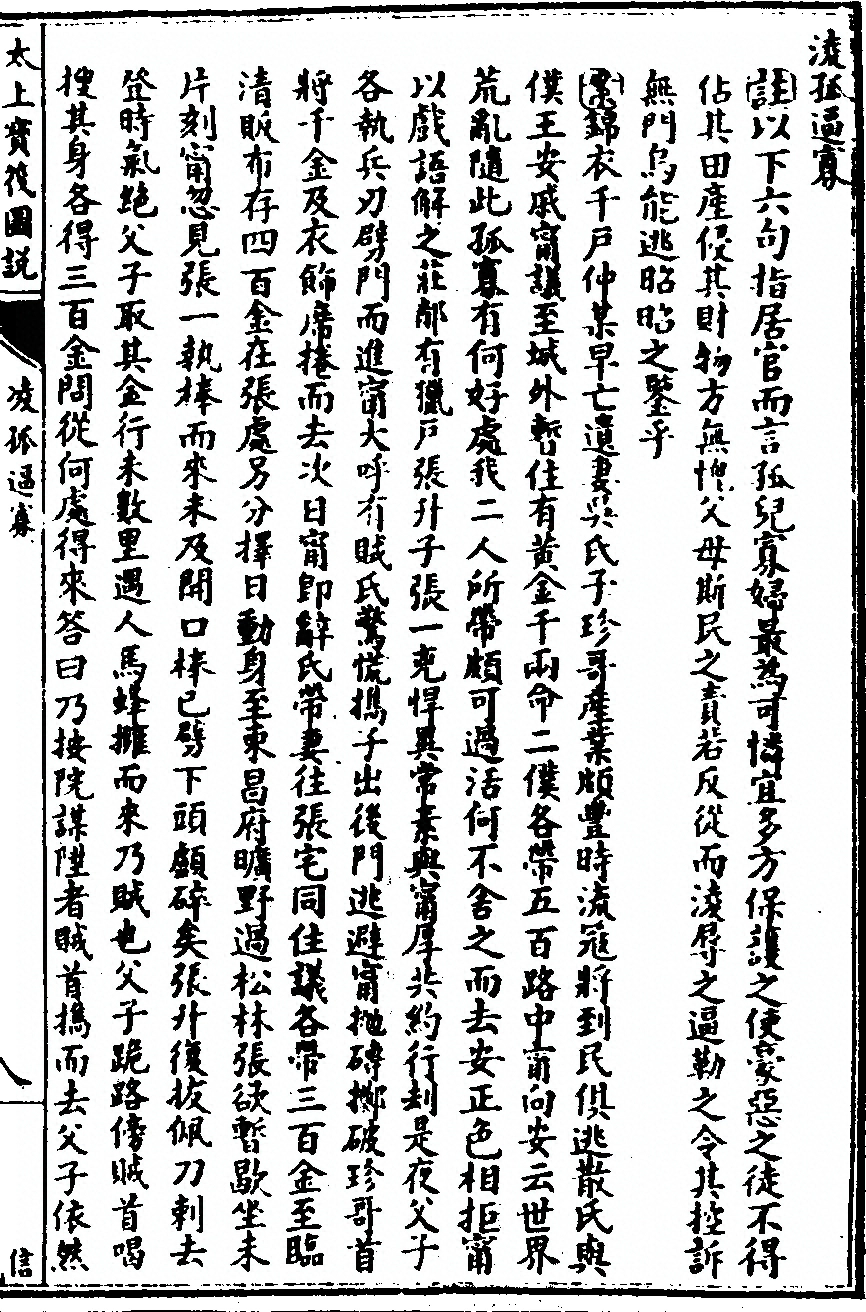 淩孤逼寡
註以下六句指居官而言孤兒寡婦最為可憐宜多方保護之使豪惡之徒不得
佔其田產侵其財物方無愧父母斯民之責若反從而淩辱之逼勒之令其控訴
無門烏能逃昭昭之鑒乎
案錦衣千戶仲某早亡遺妻吳氏子珍哥產業頗豐時流寇將到民俱逃散氏與
僕王安戚甯議至城外暫住有黃金千兩命二僕各帶五百路中甯向安云世界
荒亂隨此孤寡有何好處我二人所帶頗可過活何不舍之而去安正色相拒甯
以戲語解之莊鄰有獵戶張升子張一兇悍異常素與甯厚共約行刦是夜父子
各執兵刃劈門而進甯大呼有賊氏驚慌携子出後門逃避甯拋磚擲破珍哥首
將千金及衣飾席捲而去次日甯即辭氏帶妻往張宅同住議各帶三百金至臨
清販布存四百金在張處另分擇日動身至東昌府曠野過松林張欲暫歇坐未
片刻甯忽見張一執棒而來未及開口棒已劈下頭顱碎矣張升復拔佩刀刺去
登時氣絕父子取其金行未數里遇人馬蜂擁而來乃賊也父子跪路傍賊首喝
搜其身各得三百金問從何處得來答曰乃按院謀陞者賊首携而去父子依然
太上寶筏圖說
淩孤逼寡
八
信